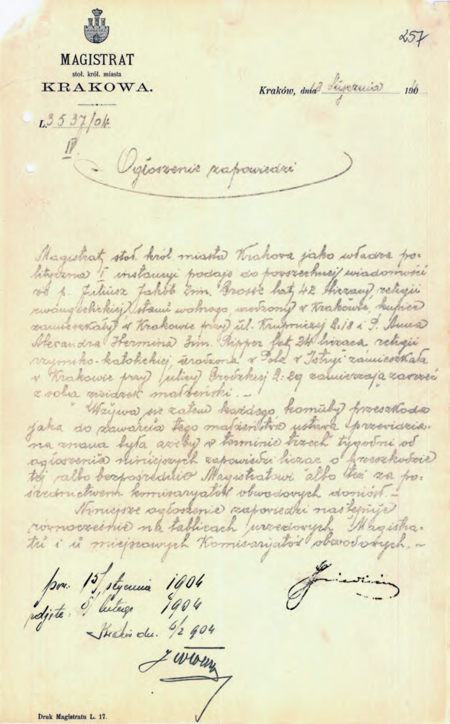 257
MAGISTRAT
stoł. król. miasta
KRAKOWA.
Kraków, dnia Stycznia 190
L. 3537/04
IV
Ogłoszenie zapowiedzi
Magistrat stoł. król miasta Krakowa jako władza po-
lityczna I instancyi podaje do powszechnej wiadomości
że p. Juliusz Jakób Grosse lat 42 liczący, religii
ewangelickiej stanu wolnego urodzony w Krakowie, kupiec
zamieszkały w Krakowie przy ul. Krupniczej i P. Anna
Alexandra Hermina lat 24 licząca, religii
rzymsko-katolickiej, urodzona w Pola w Istryi zamieszkała
w Krakowie przy ulicy zamierzają zawrzeć
z sobą związek małżeński. -
Wzywa się zatem każdego komuby przeszkoda
jaka do zawarcia tego małżeństwa ustawą przewidzia-
na znana była ażeby w terminie trzech tygodni od
ogłoszenia niniejszych zapowiedzi licząc o przeszkodzie
tej albo bezpośrednio Magistratowi albo też za po-
średnictwem komisaryatów obwodowych doniósł. -
Niniejsze ogłoszenie zapowiedzi następuje
równocześnie na tablicach urzędowych Magistra-
tu i u miejscowych Komisaryatów obwodowych. -
15/ stycznia 1904
lutego 1904
Kraków dn. 6/2 904
Druk Magistratu L. 17.